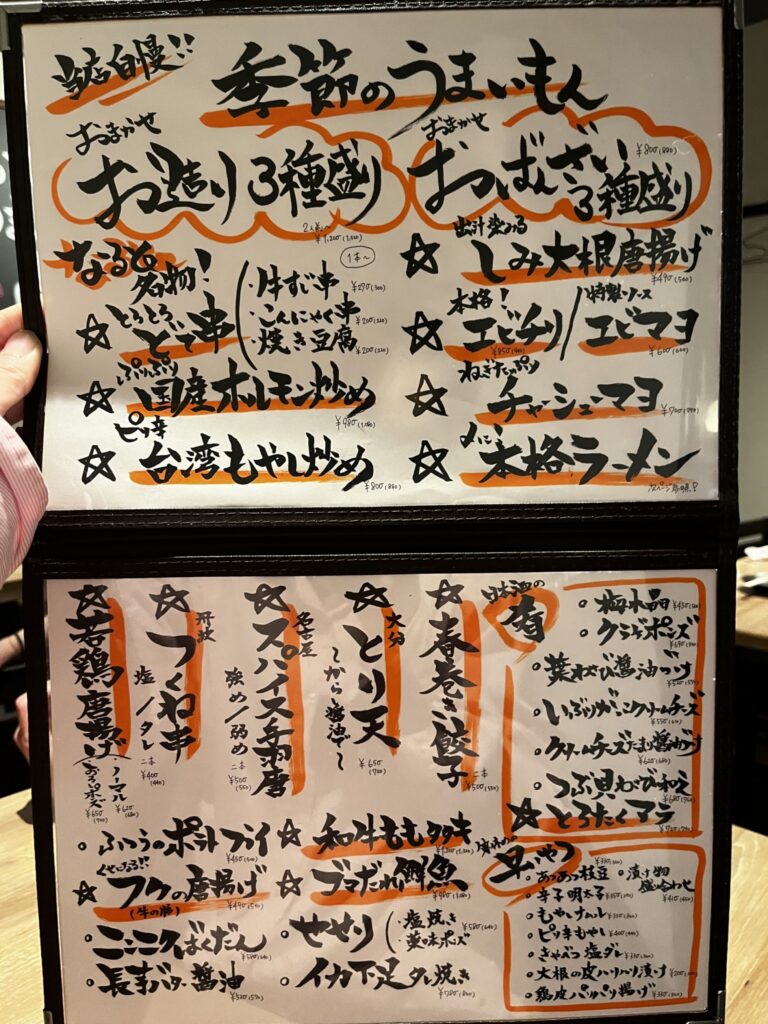 当店自慢!!
季節のうまいもん
おまかせ
お造り3種盛り
2人前〜
¥1,200(1,320)
おまかせ
おばんざい
3種盛り
¥800(880)
なると名物!
1本〜
☆とろとろ どて串
・牛すじ串
・こんにゃく串 ¥200(220)
・焼き豆腐 ¥200(220)
☆ぷりぷり 国産ホルモン炒め
¥980(1,080)
☆ピリ辛 台湾もやし炒め
¥800(880)
出汁染みる
☆しみ大根唐揚げ
¥490(540)
☆本格! エビチリ/特製ソース エビマヨ
¥600(660)
☆ねぎたっぷり チャーシューマヨ
☆〆に 本格ラーメン
☆春巻き餃子
二本
¥500(550)
☆大分 とり天
〜から醤油で〜
¥650(720)
☆名古屋 スパイス手羽唐
強め/弱め
二本
¥500(550)
☆丹波 つくね串
塩/タレ
二本
¥400(440)
☆若鶏唐揚げ
・ノーマル ¥620(680)
・おろしポンズ ¥650(720)
日本酒の肴
・極水晶
・クラゲポンズ
・葉わさび醤油づけ
・いぶりがっこクリームチーズ
・クリームチーズたまり醤油づけ
・つぶ貝わさび和え
☆とろたくアテ
・ふつうのポテトフライ
くせになる!!
☆フワの唐揚げ
(牛の肺)
¥490(540)
・ニンニクばくだん
・長芋バター醤油
☆和牛ももタタキ
☆ゴマだれ鯛魚
・せせり
・塩焼き
・薬味ポンズ
¥580(640)
・イカ下足タレ焼き
早いやつ
・あつあつ枝豆
・漬け物盛り合わせ
・辛子明太子
・もやしナムル
・ピリ辛もやし
・きゃべつ塩ダレ
・大根の皮ハリハリ漬け
・鶏皮パリパリ揚げ